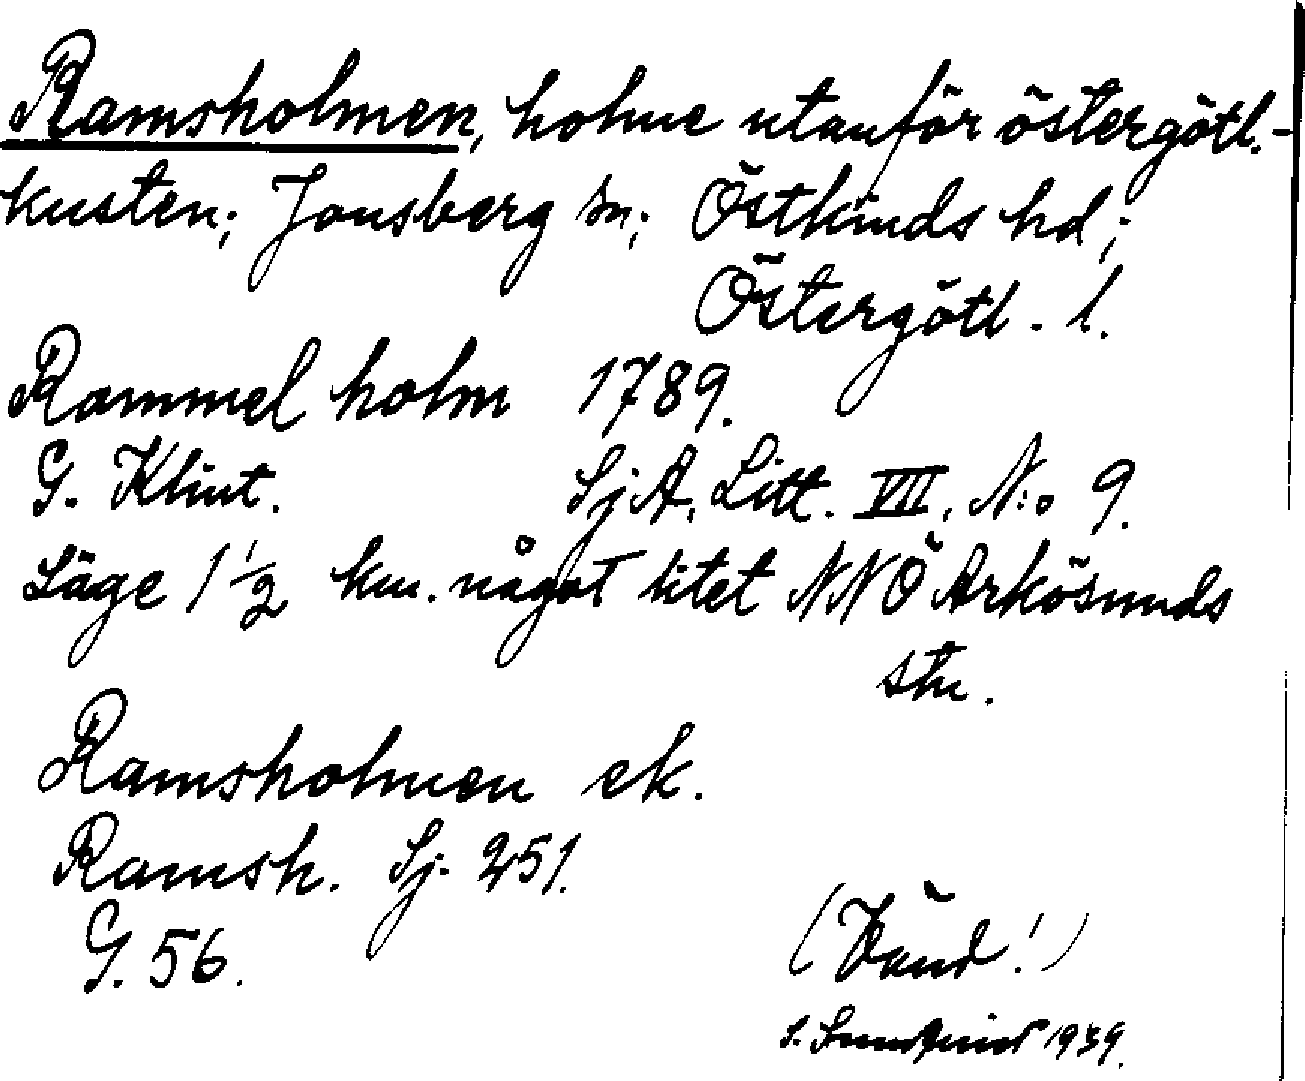 Ramsholmen, holme utanför östergötl.-
kusten; Jonsberg sn; Östkinds hd;
Östergötl. l.
Rammel holm 1789.
G. Klint. SjA, Litt. VII, N:o 9.
Läge 1 1/2 km. något litet NNÖ Arkösunds
stn.
Ramsholmen ek.
Ramsh. Sj. 251.
G. 56.
(Vänd!)
S. Sundqvist 1939.